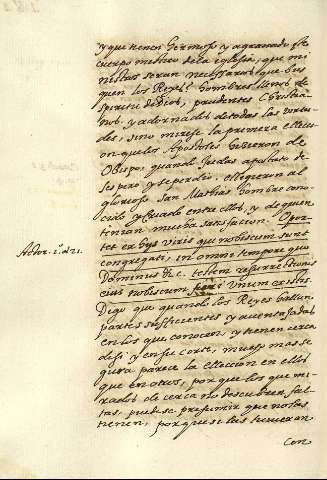 y que tienen hermoso y agraciado este
cuerpo mistico de la iglesia, que mi
nistros seran necessarios que bus
quen los Reyes? hombres llenos de
spiritu de Dios, prudentes Christia
nos y adornados de todas las virtu
des, sino mirese la primera elleccion
que los Apostoles hizieron de
Obispo, quando Judas apostato de
sespero y se perdio, elligeron al
glorioso San Mathias hombre cono
cido y criado entre ellos, y de quien
tenian mucha satisfacion. Opor
Actor. 1. d. 21.
tet ex his viris qui nobiscum sunt
congregati, in omni tempore quo
Dominus &c. testem resurrectionis
eius nobiscum fieri unum ex istis.
Digo que quando los Reyes hallan
partes sufficientes y aventajadas
en los que conocen, y tienen cerca
de si y en su corte, mucho mas se
gura parece la elleccion en ellos
que en otros, porque los que mi
rados de cerca no descubren fal
tas, puedese presumir que no las
tienen, porque si las tuvieran
Con